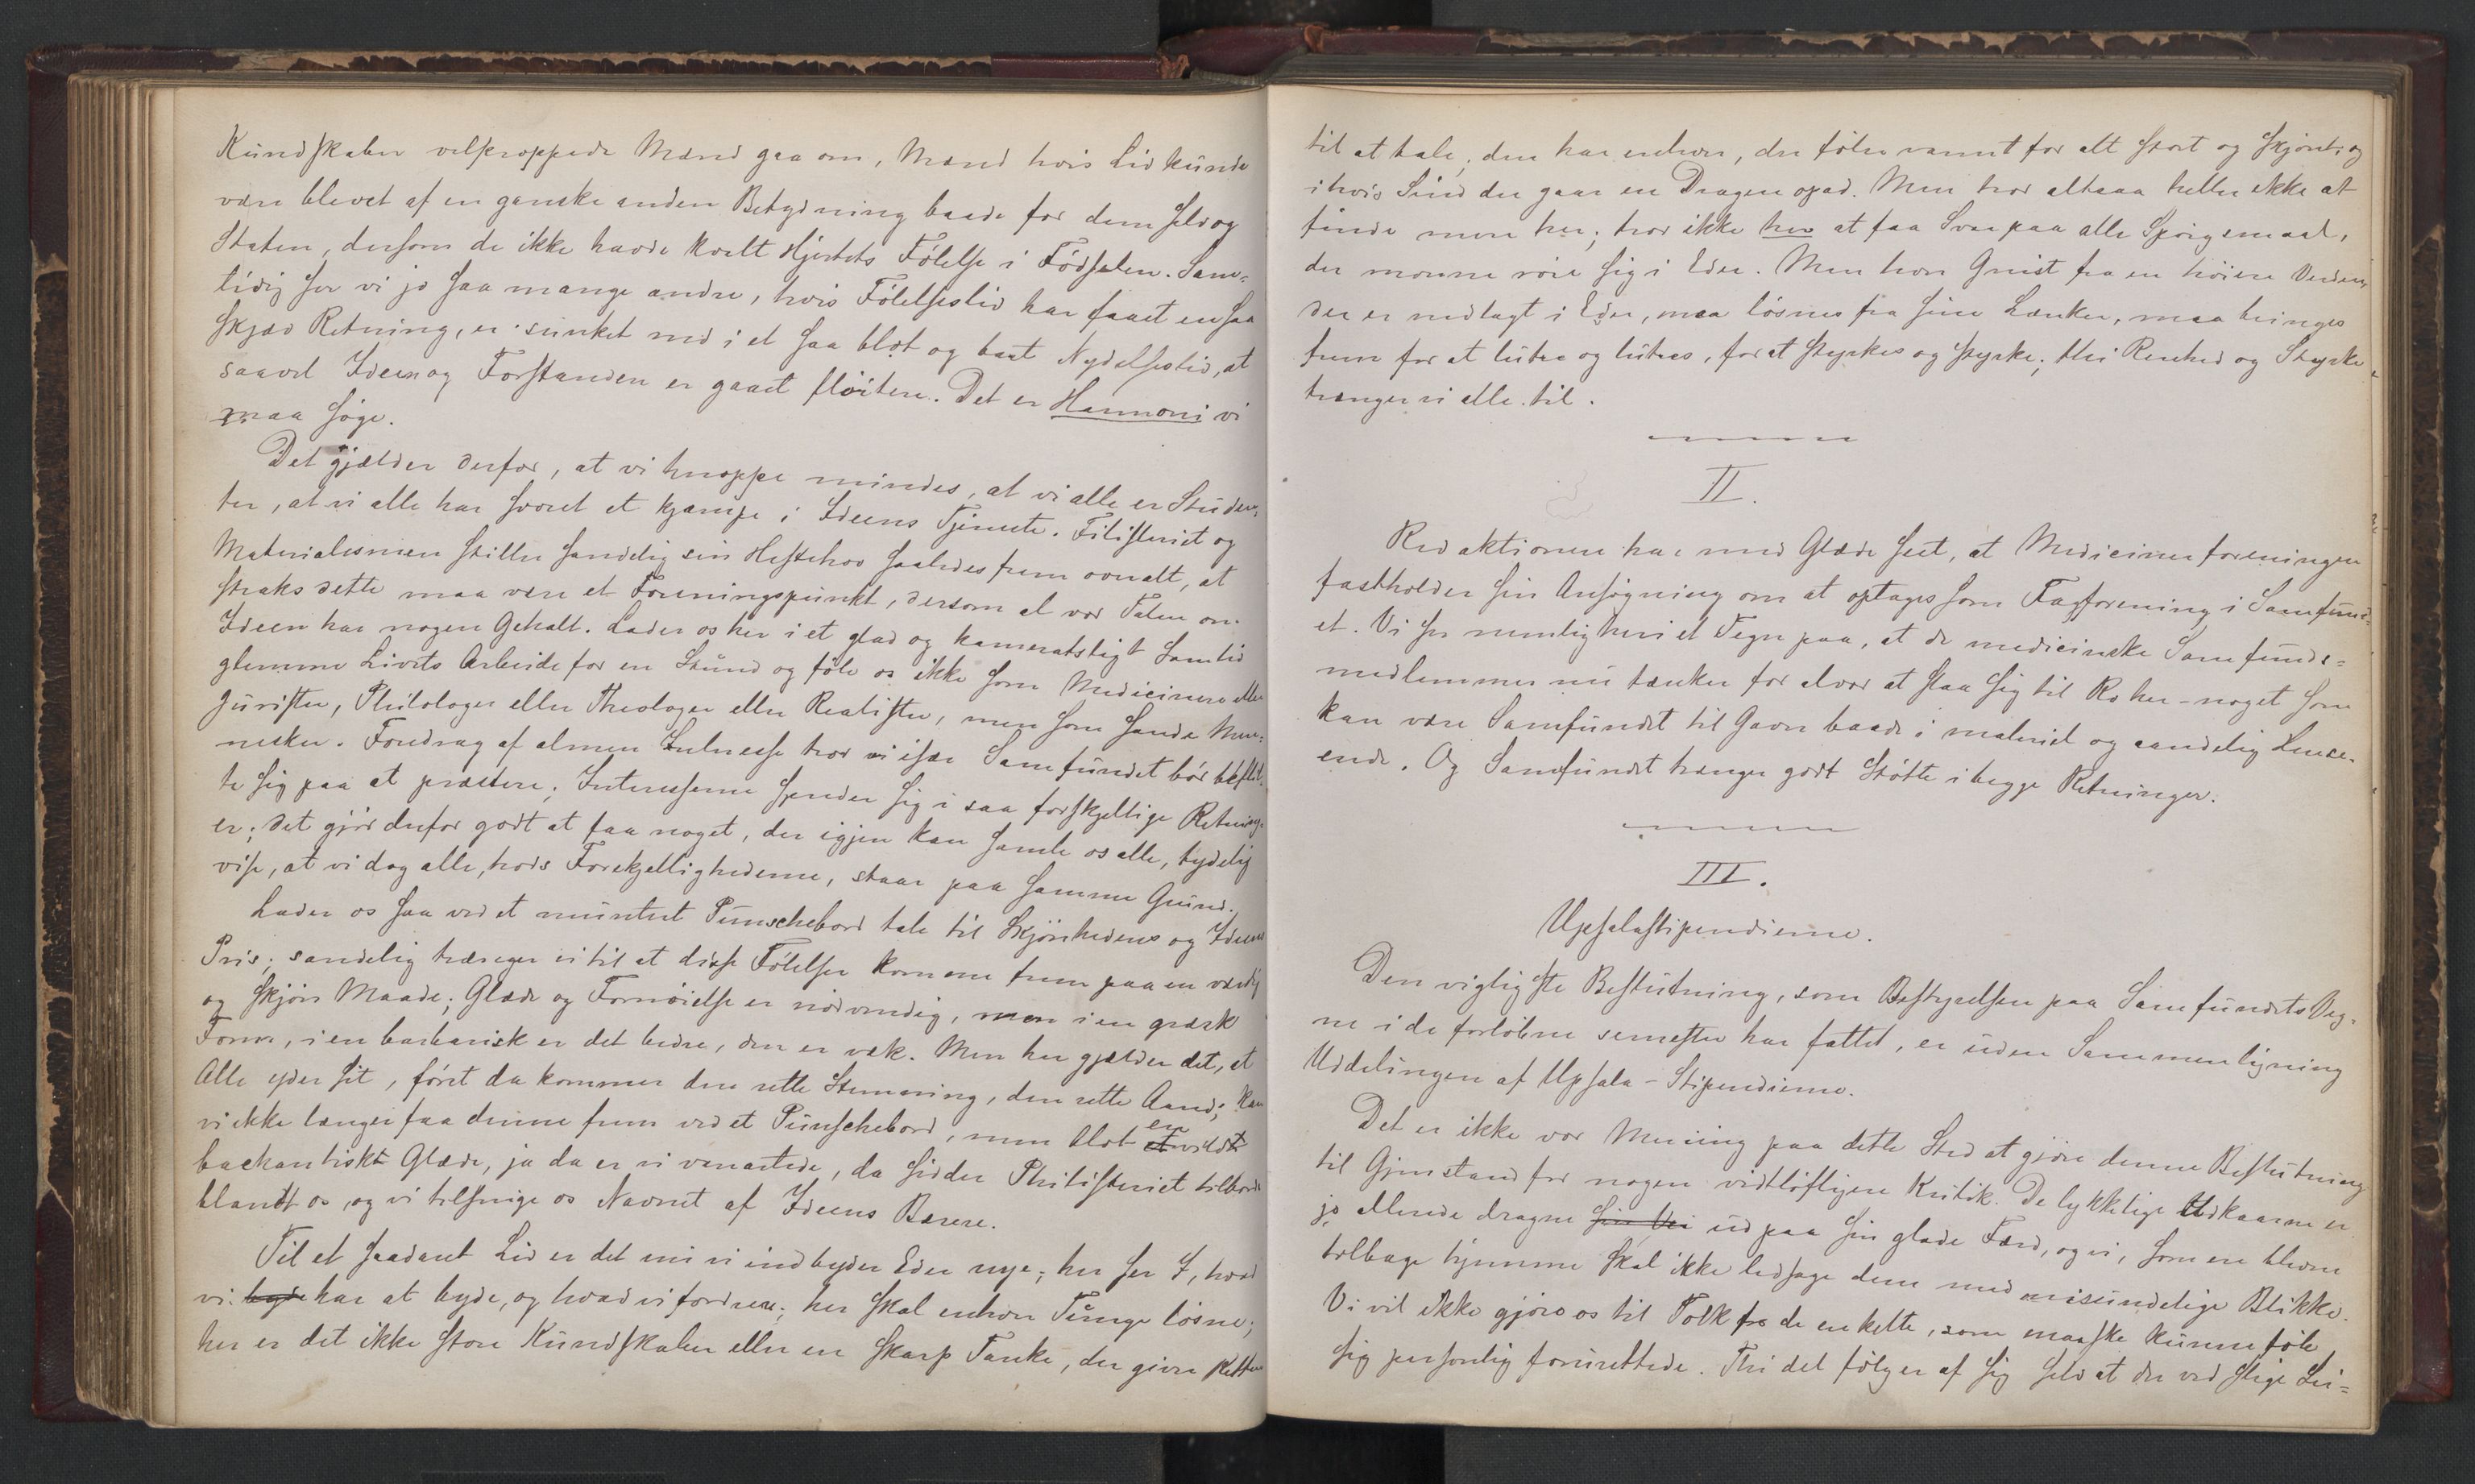 Kundskaber velproppede Mænd gaa om, Mænd hvis Liv kunde
være blevet af en ganske anden Betydning baade for dem selv og
Staten, dersom de ikke havde kvalt Hjertets Følelse i Fødselen. Sam-
tidig ser vi jo saa mange andre, hvis Følelsesliv har faaet en saa
skjæv Retning, er sunket ned i et saa blot og bart Nydelsesliv, at
saavel Ideen og Forstanden er gaaet fløiten. Det er Harmoni vi
maa søge.
Det gjælder derfor, at vi knoppe mindes, at vi alle er Studen-
ter, at vi alle har svoret et kjæmpe i Ideens Tjeneste. Filisteriet og
Materialismen stiller sandelig sin Hestehov saaledes frem overalt, at
straks dette maa være et Foreningspunkt, dersom al vor Talen om
Ideen har nogen Gehalt. Lader os her i et glad og kameratsligt Samliv
glemme Livets Arbeide for en Stund og føle os ikke som Medicinere eller
Jurister, Philologer eller Theologer eller Realister, men som sande Men-
nesker. Foredrag af almen Interesse tror vi især Samfundet bør beflit-
te sig paa at præstere; Interesserne spreder sig i saa forskjellige Retning-
er; det gjør derfor godt at faa noget, der igjen kan samle os alle, tydelig
vise, at vi dog alle, trods Forskjellighederne, staar paa samme Grund.
Lader os saa ved et muntert Punschebord tale til Skjønhedens og Ideens
Pris; sandelig trænger vi til at disse Følelser komme frem paa en værdig
og skjøn Maade; Glæde og Fornøielse er nødvendig, men i en græsk
Form, i en barbarisk er det bedre, den er væk. Men her gjælder det, at
Alle yder sit, først da kommer den rette Stemning, den rette Aand; kan
vi ikke længer faa denne frem ved et Punschebord, men blot et en vildt
backantiskt Glæde, ja da er vi vanartede, da sidder Philisteriet tilbords
blandt os og vi tilsnige os Navnet af Ideens Bærere.
Til et saadant Liv er det nu vi indbyder Eder nye; her ser I, hvad
vi byde har at byde, og hvad vi fordrer; her skal enhver Tunge løsne;
her er det ikke store Kundskaber eller en skarp Tanke, der giver Retten
til at tale, den har enhver, der føler varmt for alt stort og skjønt, og
i hvis Sind der gaar en Dragen opad. Men tror altsaa heller ikke at
finde mere her; tror ikke her at faa Svar paa alle Spørgsmaal,
der monne røre sig i Eder. Men hver Gnist fra en høiere Verden,
der er nedlagt i Eder, maa løsnes fra sine Lænker, maa bringes
frem for at lutre og lutres, for at styrkes og styrke; thi Renhed og Styrke
trænger vi alle til.
II.
Redaktionen har med Glæde seet, at Medicinerforeningen
fastholder sin Ansøgning om at optages som Fagforening i Samfund-
et. Vi ser nemlig heri et Tegn paa, at de medicinske Samfunds-
medlemmer nu tænker for alvor at slaa sig til Ro her – noget som
kan være Samfundet til Gavn baade i materiel og aandelig Henseende
ende. Og Samfundet trænger godt Støtte i begge Retninger.
III.
Upsalastipendierne.
Den vigtigste Beslutning, som Bestyrelsen paa Samfundets Veg-
ne i de forløbne semester har fattet, er uden Sammenligning
Uddelingen af Upsala-Stipendierne.
Det er ikke vor Mening paa dette Sted at gjøre denne Beslutning
til Gjenstand for nogen vidtløftigere Kritik. De lykkelige Udkaarne er
jo allerede dragne sin Vei ud paa sin glade Færd, og vi, som ere blevne
tilbage hjemme skal ikke ledsage dem med misundelige Blikke.
Vi vil ikke gjøre os til Tolk for de enkelte, som maaske kunne føle
sig personlig forurettede. Thi det følger af sig selv at der ved slige Lei-